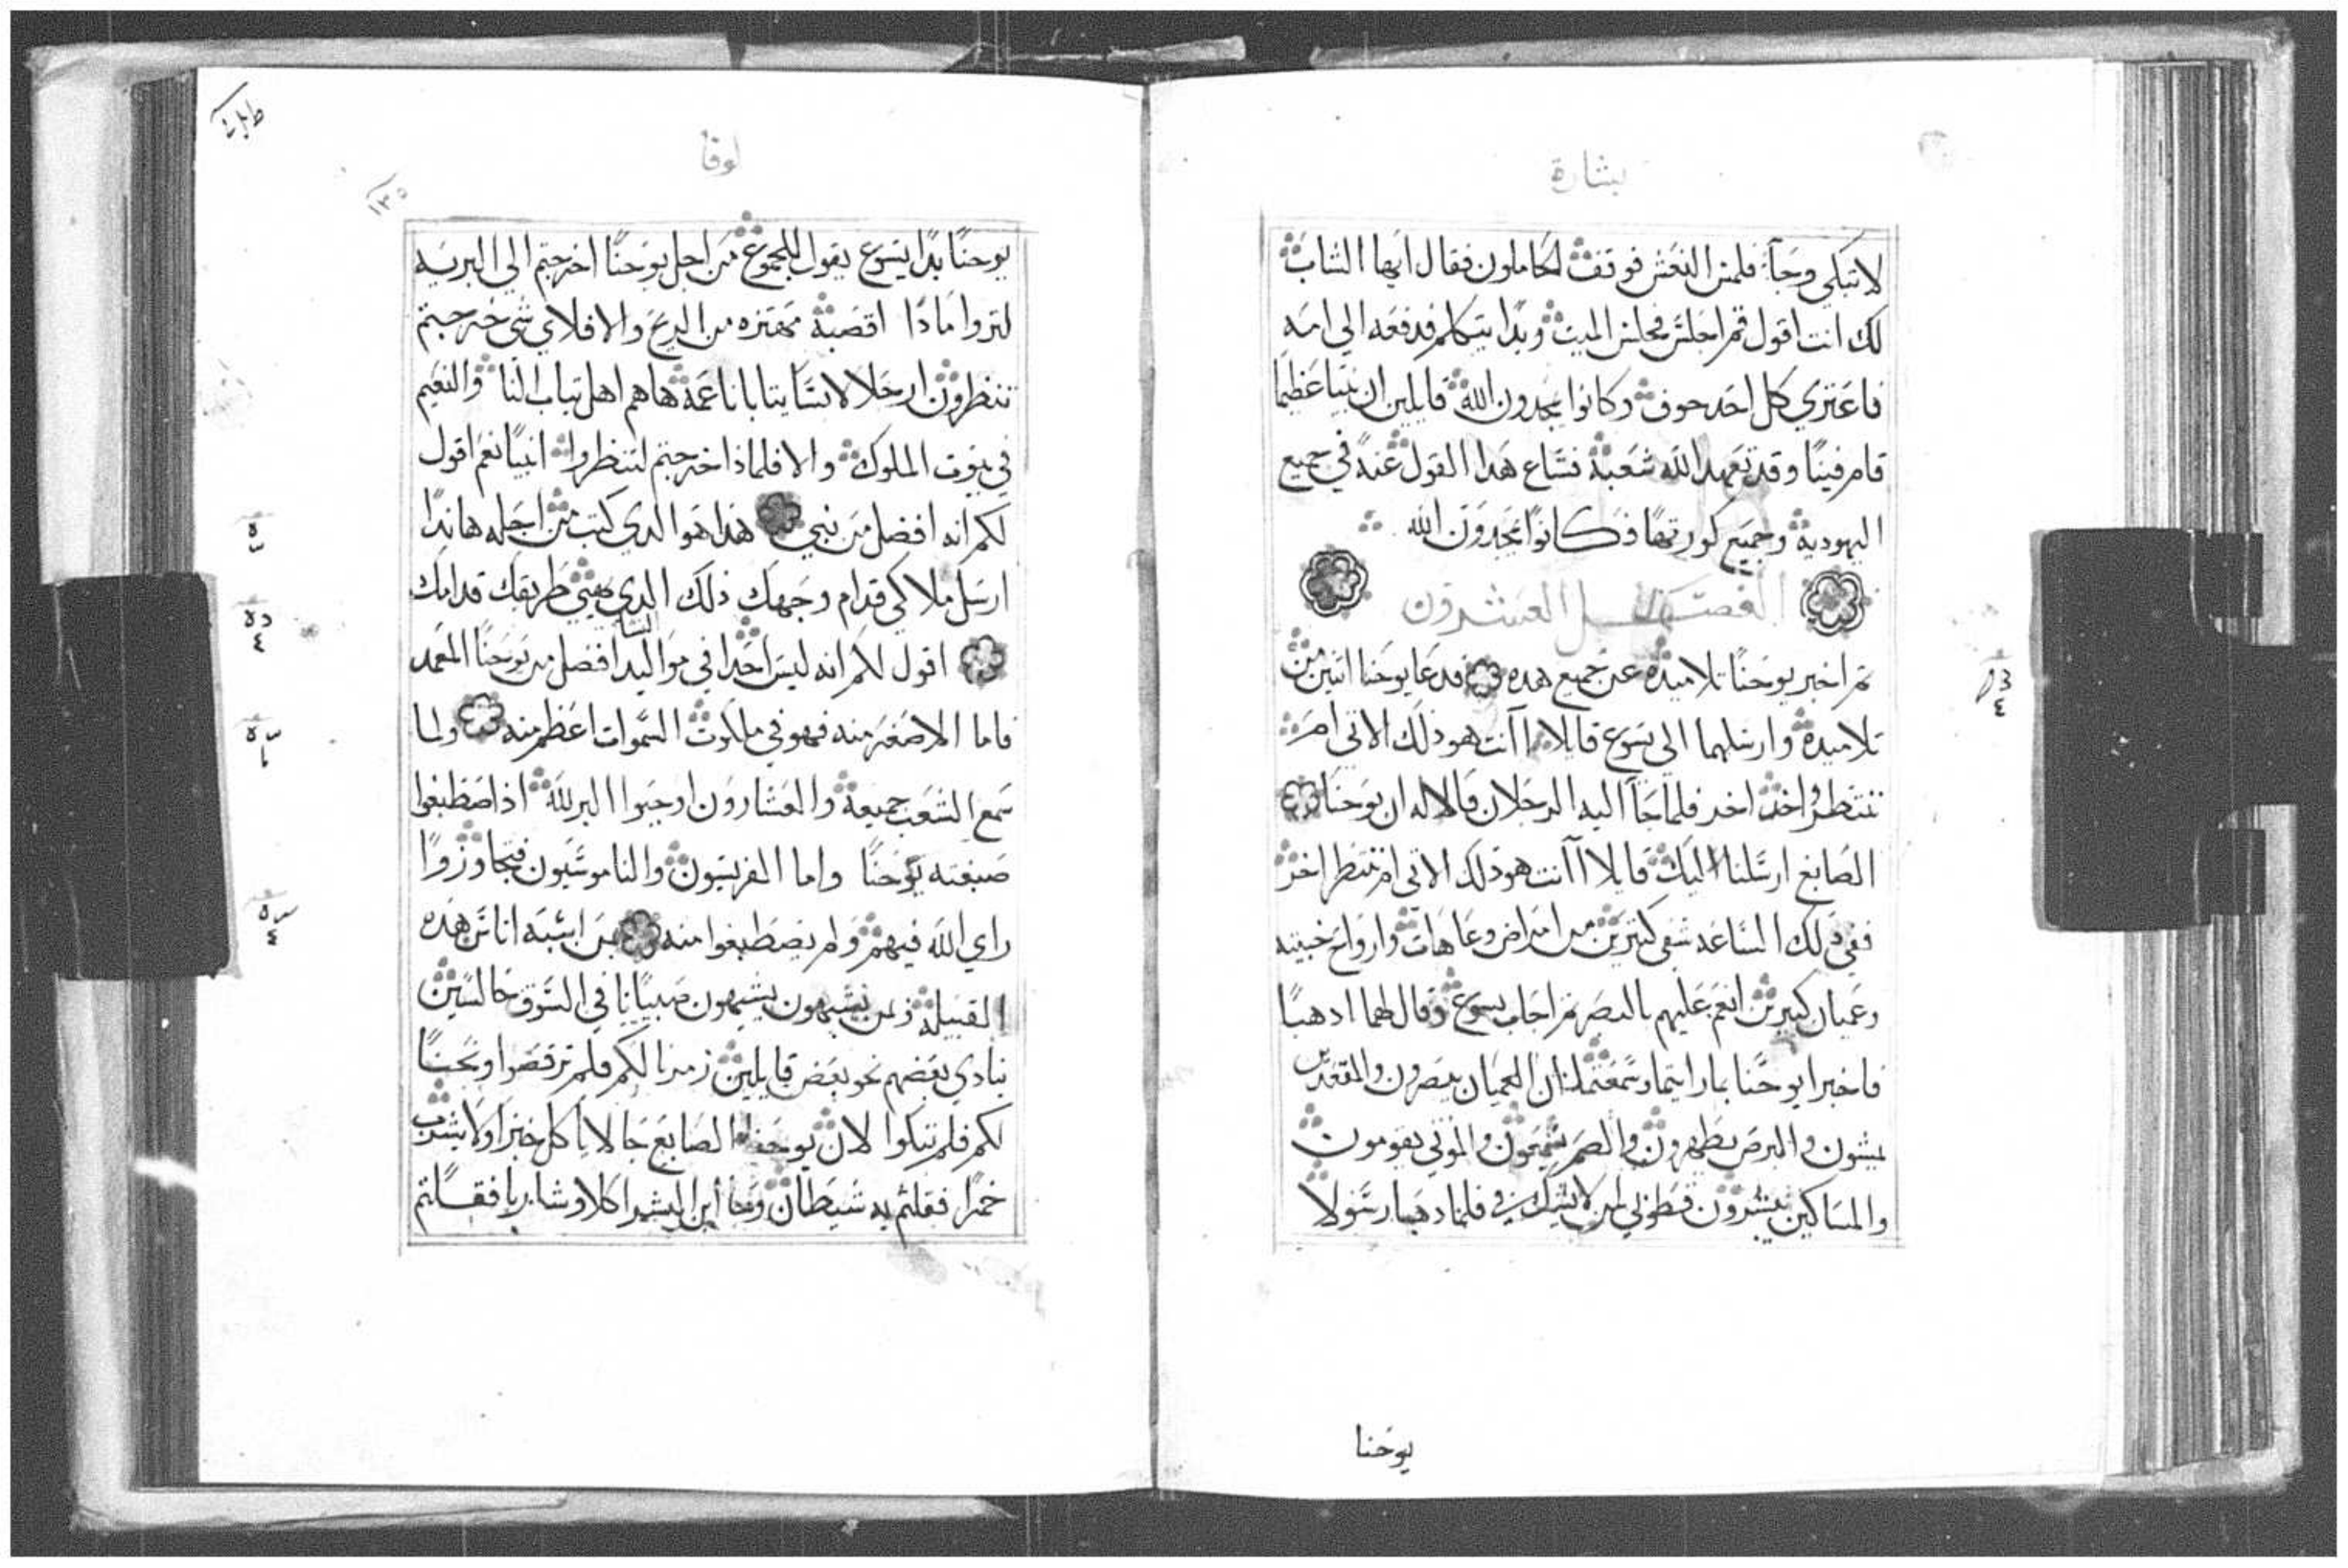 بشارة
لا تبكي وجآ فلمس النعش فوقف الحاملون فقال ايها الشاب
لك انت اقول قم اجلس فجلس الميت وبدا يتكلم فدفعه الي امه
فاعتري كل احد خوف وكانوا يمجدون الله قايلين ان نبيا عظيما
قام فينا وقد تعهد الله شعبه فشاع هدا القول عنه في جميع
اليهوديه وجميع كورتها فكانوا يمجدون الله
الفصل العشرون
ثم اخبر يوحنا تلاميده عن جميع هده فدعا يوحنا اتنين من
تلاميده وارسلهما الي يسوع قايلا اانت هو ذلك الاتي ام
ننتظر واحد اخر فلما جآ اليه الرجلان قالا له ان يوحنا
الصابغ ارسلنا اليك قايلا اانت هو ذلك الاتي ام ننتظر اخر
ففي دلك الساعه شفى كتيرين من امراض وعاهات وارواح خبيته
وعميان كتيرين انعم عليهم بالبصر تم اجاب يسوع وقال لهما ادهبا
فاخبرا يوحنا بما رايتما وسمعتما ان العميان يبصرون والمقعدين
يمشون والبرص يطهرون والصم يسمعون والموتي يقومون
والمساكين يبشرون فطوبي لمن لا يشك في فلما دهبا رسولا
يوحنا
لوقا
١٣٥
يوحنا بدا يسوع يقول للجموع من اجل يوحنا اخرجتم الي البريه
لتروا مادا اقصبة مهتزه من الريح والا فلاي شي خرجتم
تنظرون ارجلا لابسا تيابا ناعمه هاهم اهل تياب والنعيم
في بيوت الملوك والا فلماذا خرجتم لتنظروا انبيا نعم اقول
لكم انه افضل من نبي هذا هو الدي كتب من اجله هاندا
ارسل ملاكي قدام وجهك ذلك الدي يهيي طريقك قدامك
اقول لكم انه ليس احدا في مواليد النسا افضل من يوحنا المعمد
فاما الاصغر منه فهو في ملكوت السموات اعظم منه ولما
سمع الشعب جميعه والعشارون اوجبوا البر لله اذ اصطبغوا
صبغته يوحنا واما الفريسيون والناموسيون فتجاوزوا
راي الله فيهم ولم يصطبغوا منه بمن اشبه اناس هده
القبيله ومن يشبهون يشبهون صبيانا في السوق جالسين
ينادي بعضهم نحو بعض قايلين زمرنا لكم فلم ترقصوا ونحنا
لكم فلم تبكوا لان يوحنا الصابغ جا لا ياكل خبزا ولا يشرب
خمرا فقلتم به شيطان وجا ابن البشر اكلا وشاربا فقلتم